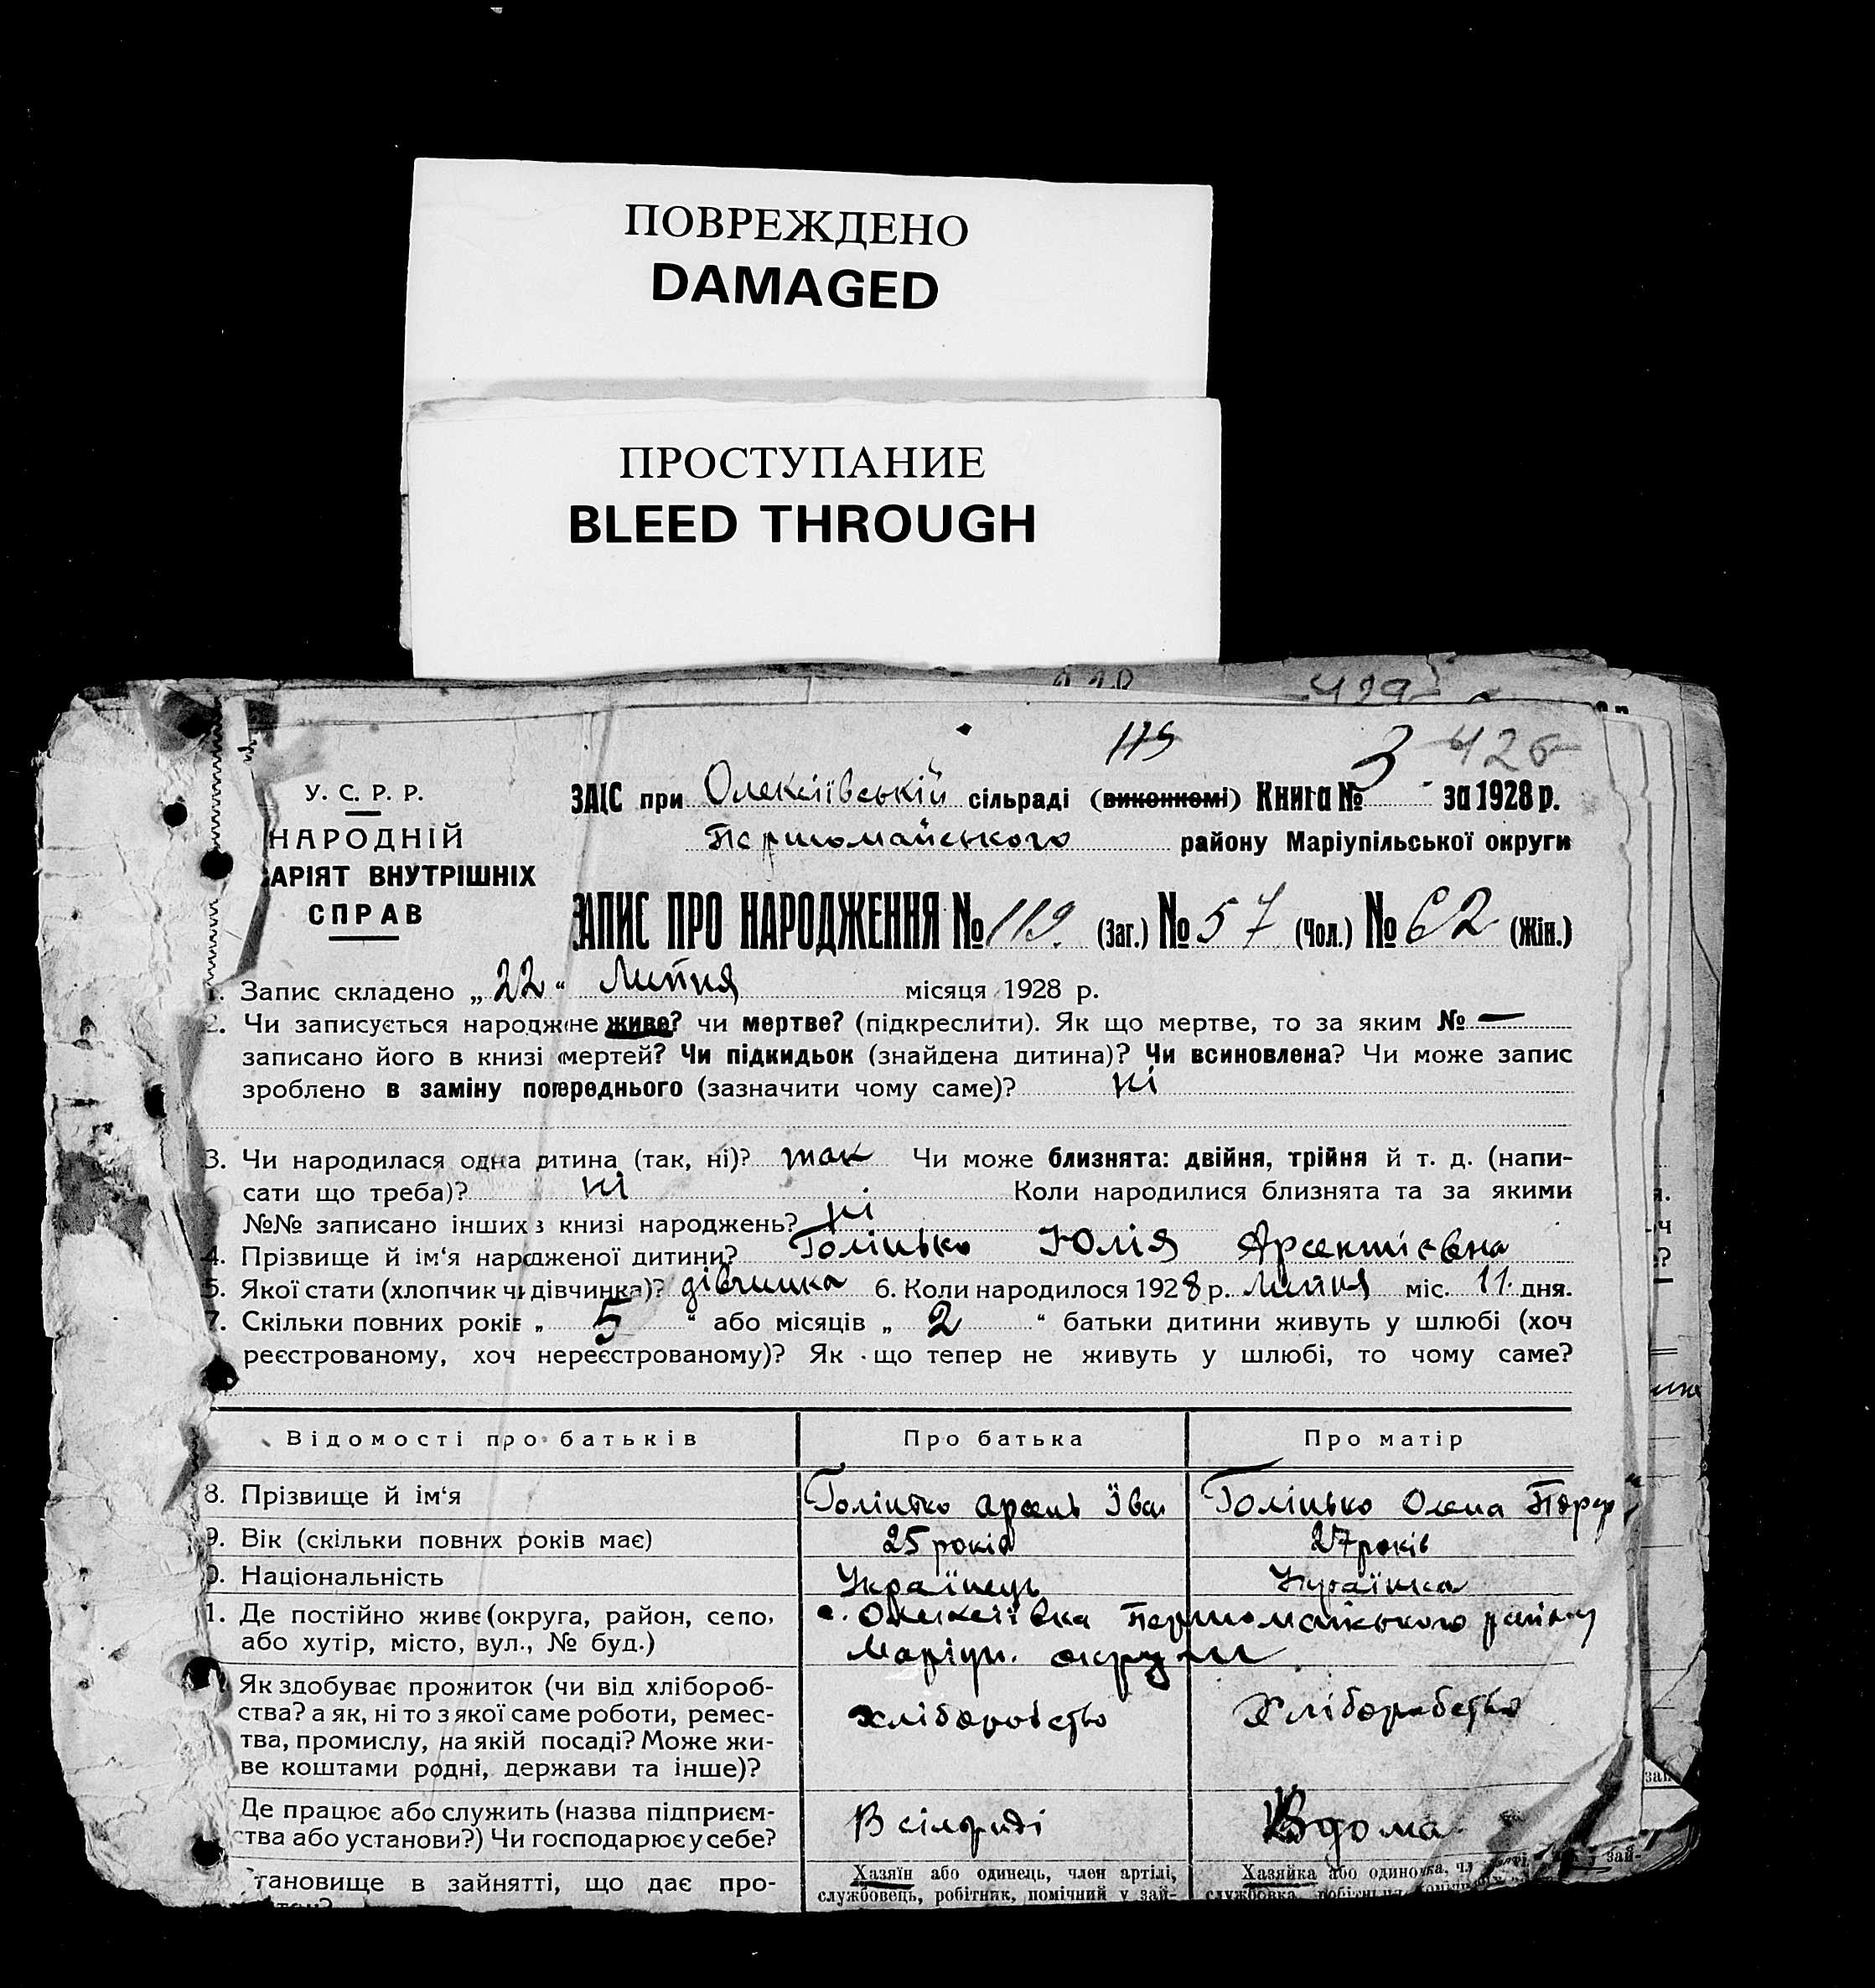 ПОВРЕЖДЕНО
DAMAGED
ПРОСТУПАНИЕ
BLEED THROUGH
429
119
3 426
У. С. Р. Р.
НАРОДНІЙ
АРІЯТ ВНУТРІШНІХ
СПРАВ
ЗАГС при Олексіївській сільраді (виконкомі) Книга № за 1928 р.
Першомайського району Маріупільської округи
ЗАПИС ПРО НАРОДЖЕННЯ № 119. (Заг.) № 57 (Чол.) № 62 (Жін.)
1. Запис складено „22“ Липня місяця 1928 р.
2. Чи записується народжене живе? чи мертве? (підкреслити). Як що мертве, то за яким № —
записано його в книзі смертей? Чи підкидьок (знайдена дитина)? Чи всиновлена? Чи може запис
зроблено в заміну попереднього (зазначити чому саме)? ні
3. Чи народилася одна дитина (так, ні)? так Чи може близнята: двійня, трійня й т. д. (напи-
сати що треба)? ні Коли народилися близнята та за якими
№№ записано інших в книзі народжень? ні
4. Прізвище й ім‘я народженої дитини? Голінько Юлія Арсентієвна
5. Якої стати (хлопчик чи дівчинка)? дівчинка 6. Коли народилося 1928 р. Липня міс. 11. дня.
7. Скільки повних років „ 5 “ або місяців „ 2 “ батьки дитини живуть у шлюбі (хоч
реєстрованому, хоч нереєстрованому)? Як що тепер не живуть у шлюбі, то чому саме?
Відомості про батьків Про батька Про матір
8. Прізвище й ім‘я Голінько Арсень Іван Голінько Олена
9. Вік (скільки повних років має) 25 років 27 років
0. Національність Українець Українка
1. Де постійно живе (округа, район, село, с. Олексіївка Першомайського району
або хутір, місто, вул., № буд.) Маріуп. округи
Як здобуває прожиток (чи від хлібороб-
ства? а як, ні то з якої саме роботи, ремес- хліборобство Хліборобство
тва, промислу, на якій посаді? Може жи-
ве коштами родні, держави та інше)?
Де працює або служить (назва підприєм- В сільраді Вдома
ства або установи?) Чи господарює у себе?
тановище в зайнятті, що дає про- Хазяїн або одинець, член артілі, Хазяйка або одиночка,
службовець, робітник, помічний у зай- службовка